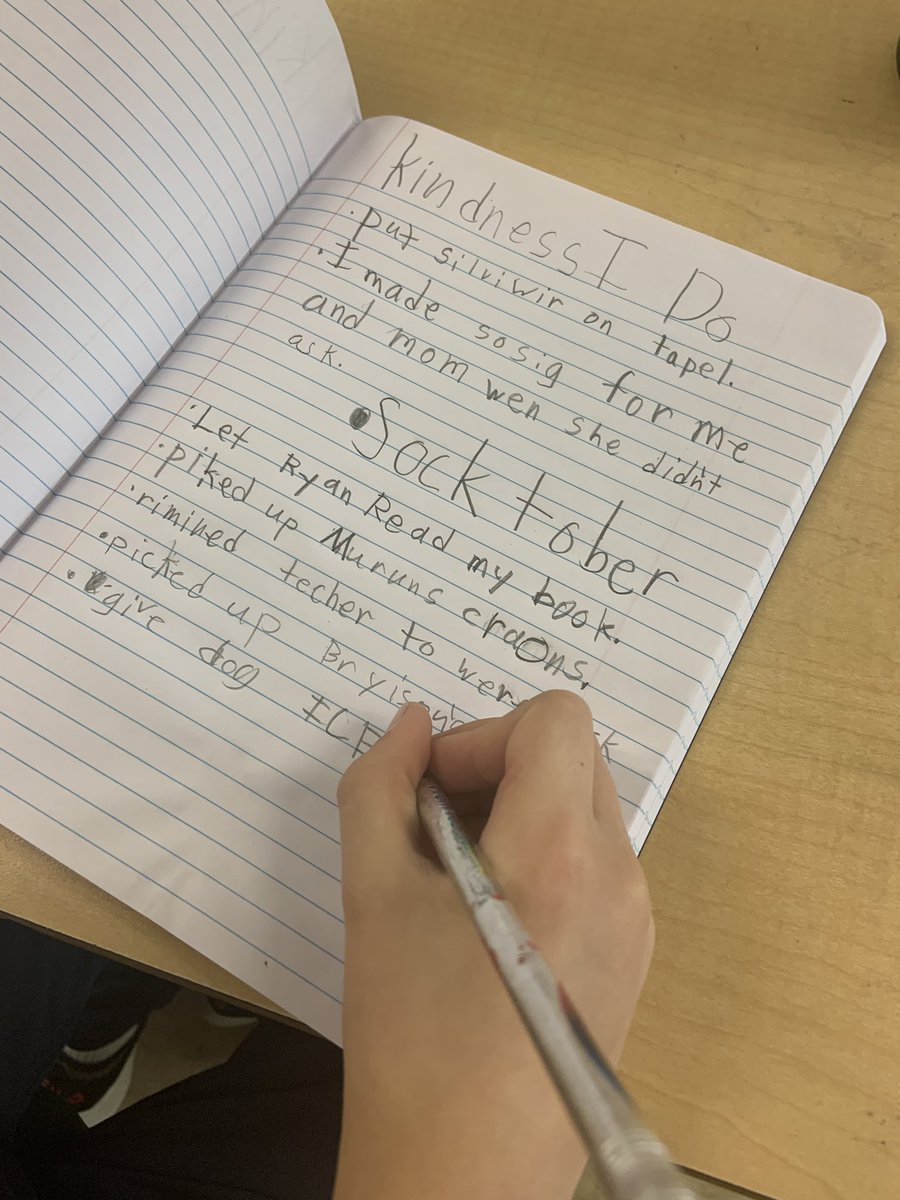 kindness I Do
• put silviwir on tapel.
• I made sosig for me
and mom wen she didn't
ask.
• Sock tober
• Let Ryan Read my book.
• piked up Muruns craons.
• rimined techer to wer
• picked up
• give dog ICE